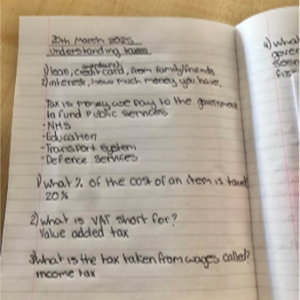 20th March 2025
Understanding taxes
1) loan, credit card, from family/friends
2) interest, how much money you have,
Tax is money we pay to the government
to fund public services
-NHS
-Education
-Transport system
-Defence services
1) What % of the cost of an item is taxed?
20%
2) What is VAT short for?
Value added tax
3) What is the tax taken from wages called?
income tax
4) What
gover